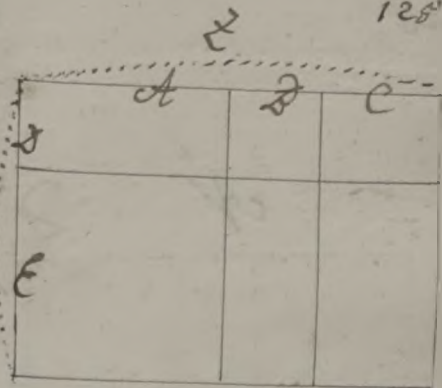 125
Z
A B C
D
E